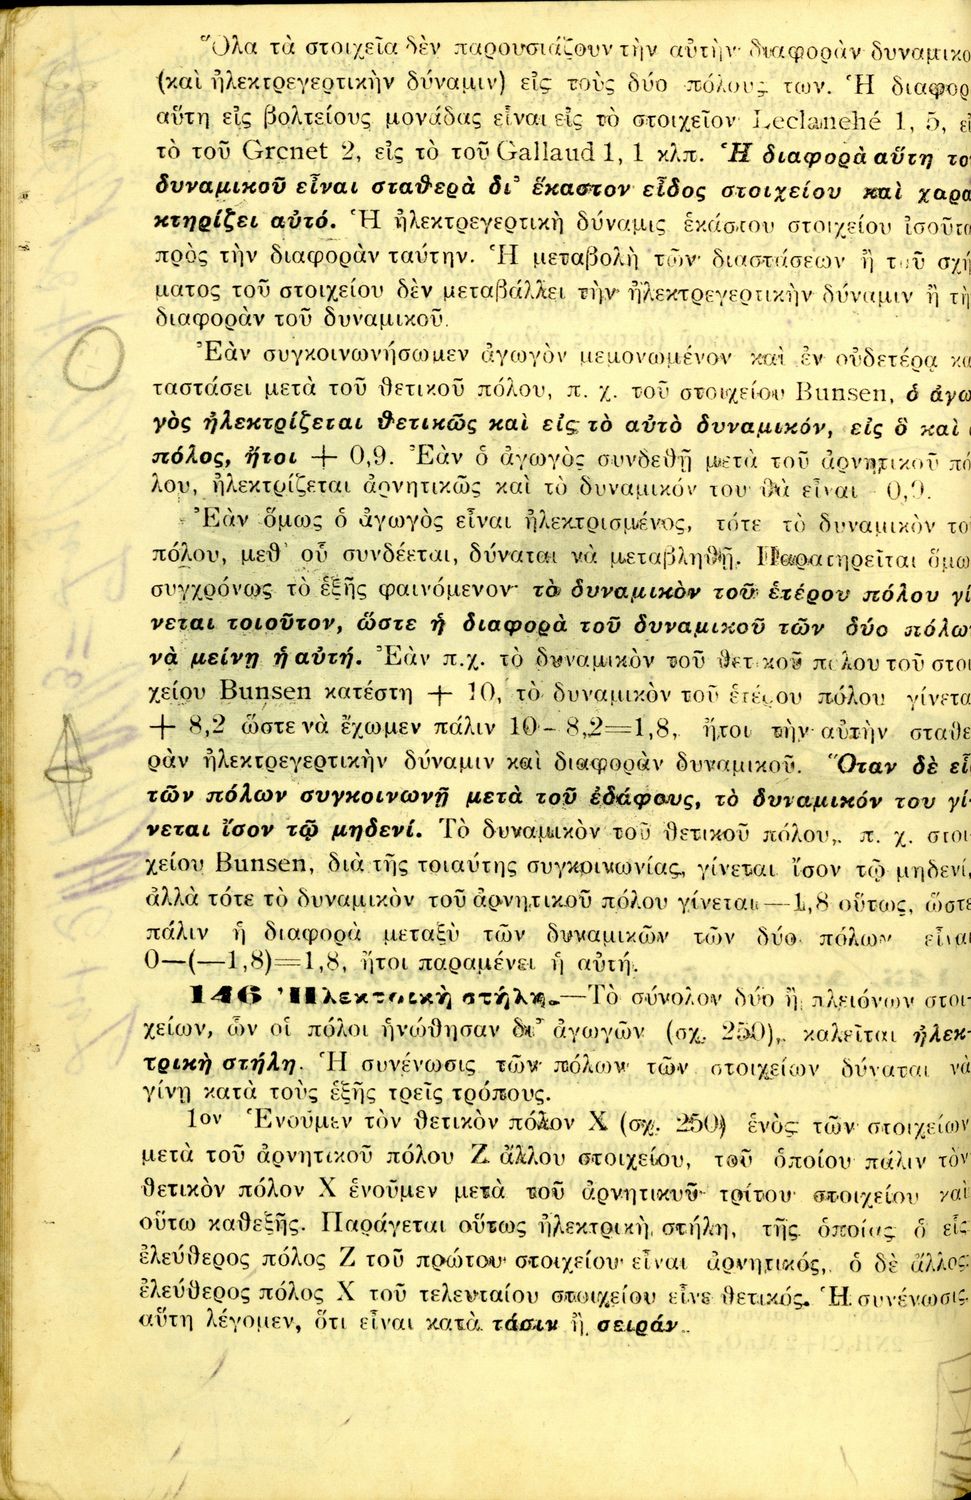 Ὅλα τὰ στοιχεῖα δὲν παρουσιάζουν τὴν αὐτὴν διαφορὰν δυναμικο
(καὶ ἠλεκτρεγερτικὴν δύναμιν) εἰς τοὺς δύο πόλους των. Ἡ διαφορ
αὕτη εἰς βολτείους μονάδας εἶναι εἰς τὸ στοιχεῖον Leclanehé 1, 5, εἰ
τὸ τοῦ Grenet 2, εἰς τὸ τοῦ Gallaud 1, 1 κλπ. Ἡ διαφορὰ αὕτη το
δυναμικοῦ εἶναι σταθερὰ δι' ἕκαστον εἶδος στοιχείου καὶ χαρα
κτηρίζει αὐτό. Ἡ ἠλεκτρεγερτικὴ δύναμις ἑκάστου στοιχείου ἰσοῦτα
πρὸς τὴν διαφορὰν ταύτην. Ἡ μεταβολὴ τῶν διαστάσεων ἢ τοῦ σχή
ματος τοῦ στοιχείου δὲν μεταβάλλει τὴν ἠλεκτρεγερτικὴν δύναμιν ἢ τὴ
διαφορὰν τοῦ δυναμικοῦ.
Ἐὰν συγκοινωνήσωμεν ἀγωγὸν μεμονωμένον καὶ ἐν οὐδετέρᾳ κα
ταστάσει μετὰ τοῦ θετικοῦ πόλου, π. χ. τοῦ στοιχείου Bunsen, ὁ ἀγω
γὸς ἠλεκτρίζεται θετικῶς καὶ εἰς τὸ αὐτὸ δυναμικόν, εἰς ὃ καὶ
πόλος, ἤτοι + 0,9. Ἐὰν ὁ ἀγωγὸς συνδεθῇ μετὰ τοῦ ἀρνητικοῦ πό
λου, ἠλεκτρίζεται ἀρνητικῶς καὶ τὸ δυναμικόν του θὰ εἶναι 0,9.
Ἐὰν ὅμως ὁ ἀγωγὸς εἶναι ἠλεκτρισμένος, τότε τὸ δυναμικὸν το
πόλου, μεθ' οὗ συνδέεται, δύναται νὰ μεταβληθῇ. Παρατηρεῖται ὅμω
συγχρόνως τὸ ἑξῆς φαινόμενον· τὸ δυναμικὸν τοῦ ἑτέρου πόλου γί
νεται τοιοῦτον, ὥστε ἡ διαφορὰ τοῦ δυναμικοῦ τῶν δύο πόλω
νὰ μείνῃ ἡ αὐτή. Ἐὰν π.χ. τὸ δυναμικὸν τοῦ θετικοῦ πόλου τοῦ στοι
χείου Bunsen κατέστη + 10, τὸ δυναμικὸν τοῦ ἑτέρου πόλου γίνετα
+ 8,2 ὥστε νὰ ἔχωμεν πάλιν 10- 8,2=1,8, ἤτοι τὴν αὐτὴν σταθε
ρὰν ἠλεκτρεγερτικὴν δύναμιν καὶ διαφορὰν δυναμικοῦ. Ὅταν δὲ εἷ
τῶν πόλων συγκοινωνῇ μετὰ τοῦ ἐδάφους, τὸ δυναμικόν του γί-
νεται ἴσον τῷ μηδενί. Τὸ δυναμικὸν τοῦ θετικοῦ πόλου, π. χ. στοι
χείου Bunsen, διὰ τῆς τοιαύτης συγκοινωνίας, γίνεται ἴσον τῷ μηδενί,
ἀλλὰ τότε τὸ δυναμικὸν τοῦ ἀρνητικοῦ πόλου γίνεται —1,8 οὕτως, ὥστε
πάλιν ἡ διαφορὰ μεταξὺ τῶν δυναμικῶν τῶν δύο πόλων εἶναι
0—(—1,8)=1,8, ἤτοι παραμένει ἡ αὐτή.
146 Ἠλεκτρικὴ στήλη.—Τὸ σύνολον δύο ἢ πλειόνων στοι-
χείων, ὧν οἱ πόλοι ἡνώθησαν δι' ἀγωγῶν (σχ. 250), καλεῖται ἠλεκ-
τρικὴ στήλη. Ἡ συνένωσις τῶν πόλων τῶν στοιχείων δύναται νὰ
γίνῃ κατὰ τοὺς ἑξῆς τρεῖς τρόπους.
1ον Ἑνοῦμεν τὸν θετικὸν πόλον Χ (σχ. 250) ἑνὸς τῶν στοιχείων
μετὰ τοῦ ἀρνητικοῦ πόλου Ζ ἄλλου στοιχείου, τοῦ ὁποίου πάλιν τὸν
θετικὸν πόλον Χ ἑνοῦμεν μετὰ τοῦ ἀρνητικοῦ τρίτου στοιχείου καὶ
οὕτω καθεξῆς. Παράγεται οὕτως ἠλεκτρικὴ στήλη, τῆς ὁποίας ὁ εἷς
ἐλεύθερος πόλος Ζ τοῦ πρώτου στοιχείου εἶναι ἀρνητικός, ὁ δὲ ἄλλος
ἐλεύθερος πόλος Χ τοῦ τελευταίου στοιχείου εἶνε θετικός. Ἡ συνένωσις
αὕτη λέγομεν, ὅτι εἶναι κατὰ τάσιν ἢ σειράν.